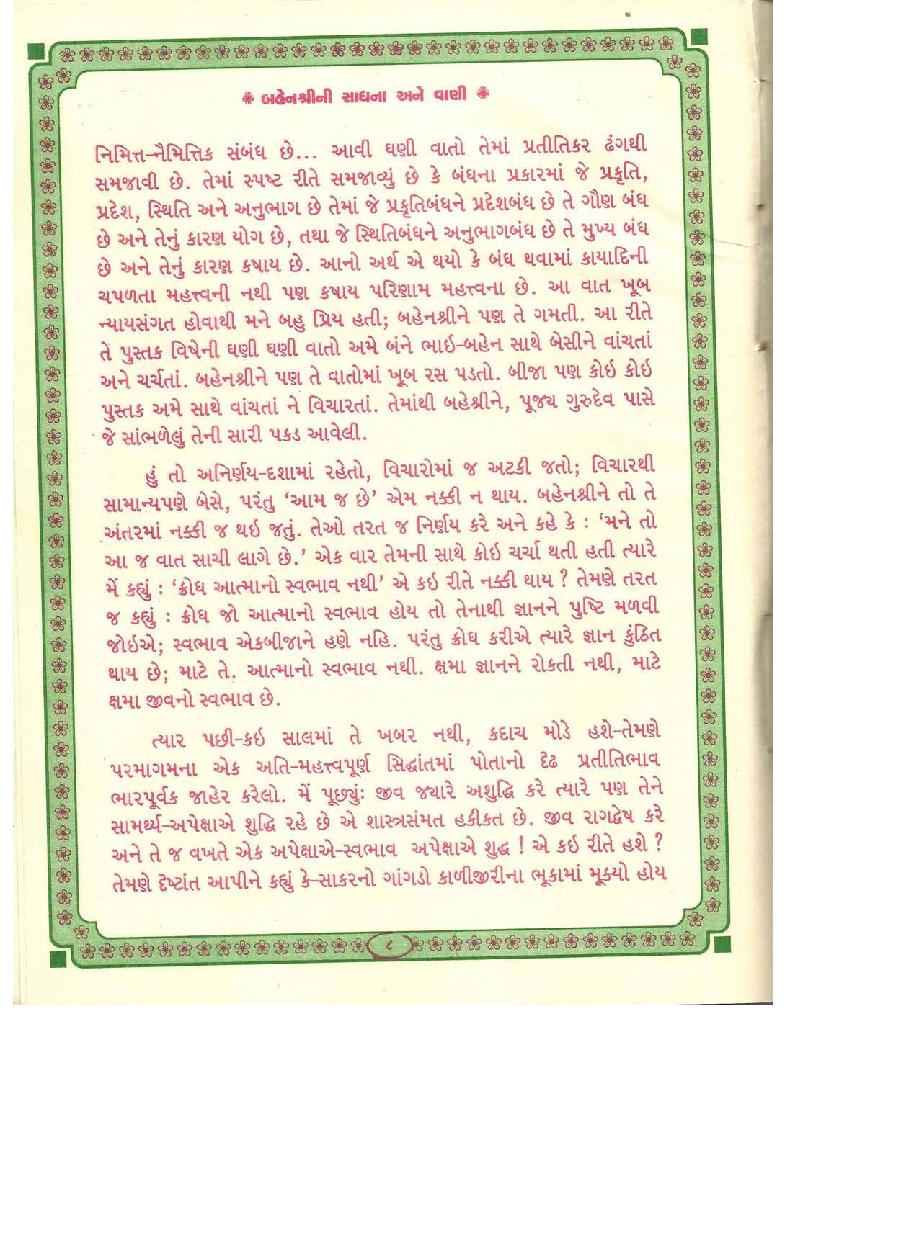 ❋ બહેનશ્રીની સાધના અને વાણી ❋
નિમિત્ત-નૈમિત્તિક સંબંધ છે... આવી ઘણી વાતો તેમાં પ્રતીતિકર ઢંગથી
સમજાવી છે. તેમાં સ્પષ્ટ રીતે સમજાવ્યું છે કે બંધના પ્રકારમાં જે પ્રકૃતિ,
પ્રદેશ, સ્થિતિ અને અનુભાગ છે તેમાં જે પ્રકૃતિબંધને પ્રદેશબંધ છે તે ગૌણ બંધ
છે અને તેનું કારણ યોગ છે, તથા જે સ્થિતિબંધને અનુભાગબંધ છે તે મુખ્ય બંધ
છે અને તેનું કારણ કષાય છે. આનો અર્થ એ થયો કે બંધ થવામાં કાયાદિની
ચપળતા મહત્ત્વની નથી પણ કષાય પરિણામ મહત્ત્વના છે. આ વાત ખૂબ
ન્યાયસંગત હોવાથી મને બહુ પ્રિય હતી; બહેનશ્રીને પણ તે ગમતી. આ રીતે
તે પુસ્તક વિષેની ઘણી ઘણી વાતો અમે બંને ભાઇ-બહેન સાથે બેસીને વાંચતાં
અને ચર્ચતાં. બહેનશ્રીને પણ તે વાતોમાં ખૂબ રસ પડતો. બીજા પણ કોઇ કોઇ
પુસ્તક અમે સાથે વાંચતાં ને વિચારતાં. તેમાંથી બહેશ્રીને, પૂજ્ય ગુરુદેવ પાસે
જે સાંભળેલું તેની સારી પકડ આવેલી.
હું તો અનિર્ણય-દશામાં રહેતો, વિચારોમાં જ અટકી જતો; વિચારથી
સામાન્યપણે બેસે, પરંતુ ‘આમ જ છે’ એમ નક્કી ન થાય. બહેનશ્રીને તો તે
અંતરમાં નક્કી જ થઇ જતું. તેઓ તરત જ નિર્ણય કરે અને કહે કે : ‘મને તો
આ જ વાત સાચી લાગે છે.’ એક વાર તેમની સાથે કોઇ ચર્ચા થતી હતી ત્યારે
મેં કહ્યું : ‘ક્રોધ આત્માનો સ્વભાવ નથી’ એ કઇ રીતે નક્કી થાય ? તેમણે તરત
જ કહ્યું : ક્રોધ જો આત્માનો સ્વભાવ હોય તો તેનાથી જ્ઞાનને પુષ્ટિ મળવી
જોઇએ; સ્વભાવ એકબીજાને હણે નહિ. પરંતુ ક્રોધ કરીએ ત્યારે જ્ઞાન કુંઠિત
થાય છે; માટે તે. આત્માનો સ્વભાવ નથી. ક્ષમા જ્ઞાનને રોકતી નથી, માટે
ક્ષમા જીવનો સ્વભાવ છે.
ત્યાર પછી-કઇ સાલમાં તે ખબર નથી, કદાચ મોડે હશે-તેમણે
પરમાગમના એક અતિ-મહત્ત્વપૂર્ણ સિદ્ધાંતમાં પોતાનો દૃઢ પ્રતીતિભાવ
ભારપૂર્વક જાહેર કરેલો. મેં પૂછ્યુંઃ જીવ જ્યારે અશુદ્ધિ કરે ત્યારે પણ તેને
સામર્થ્ય-અપેક્ષાએ શુદ્ધિ રહે છે એ શાસ્ત્રસંમત હકીકત છે. જીવ રાગદ્વેષ કરે
અને તે જ વખતે એક અપેક્ષાએ-સ્વભાવ અપેક્ષાએ શુદ્ધ ! એ કઇ રીતે હશે ?
તેમણે દૃષ્ટાંત આપીને કહ્યું કે-સાકરનો ગાંગડો કાળીજીરીના ભૂકામાં મૂક્યો હોય
૮